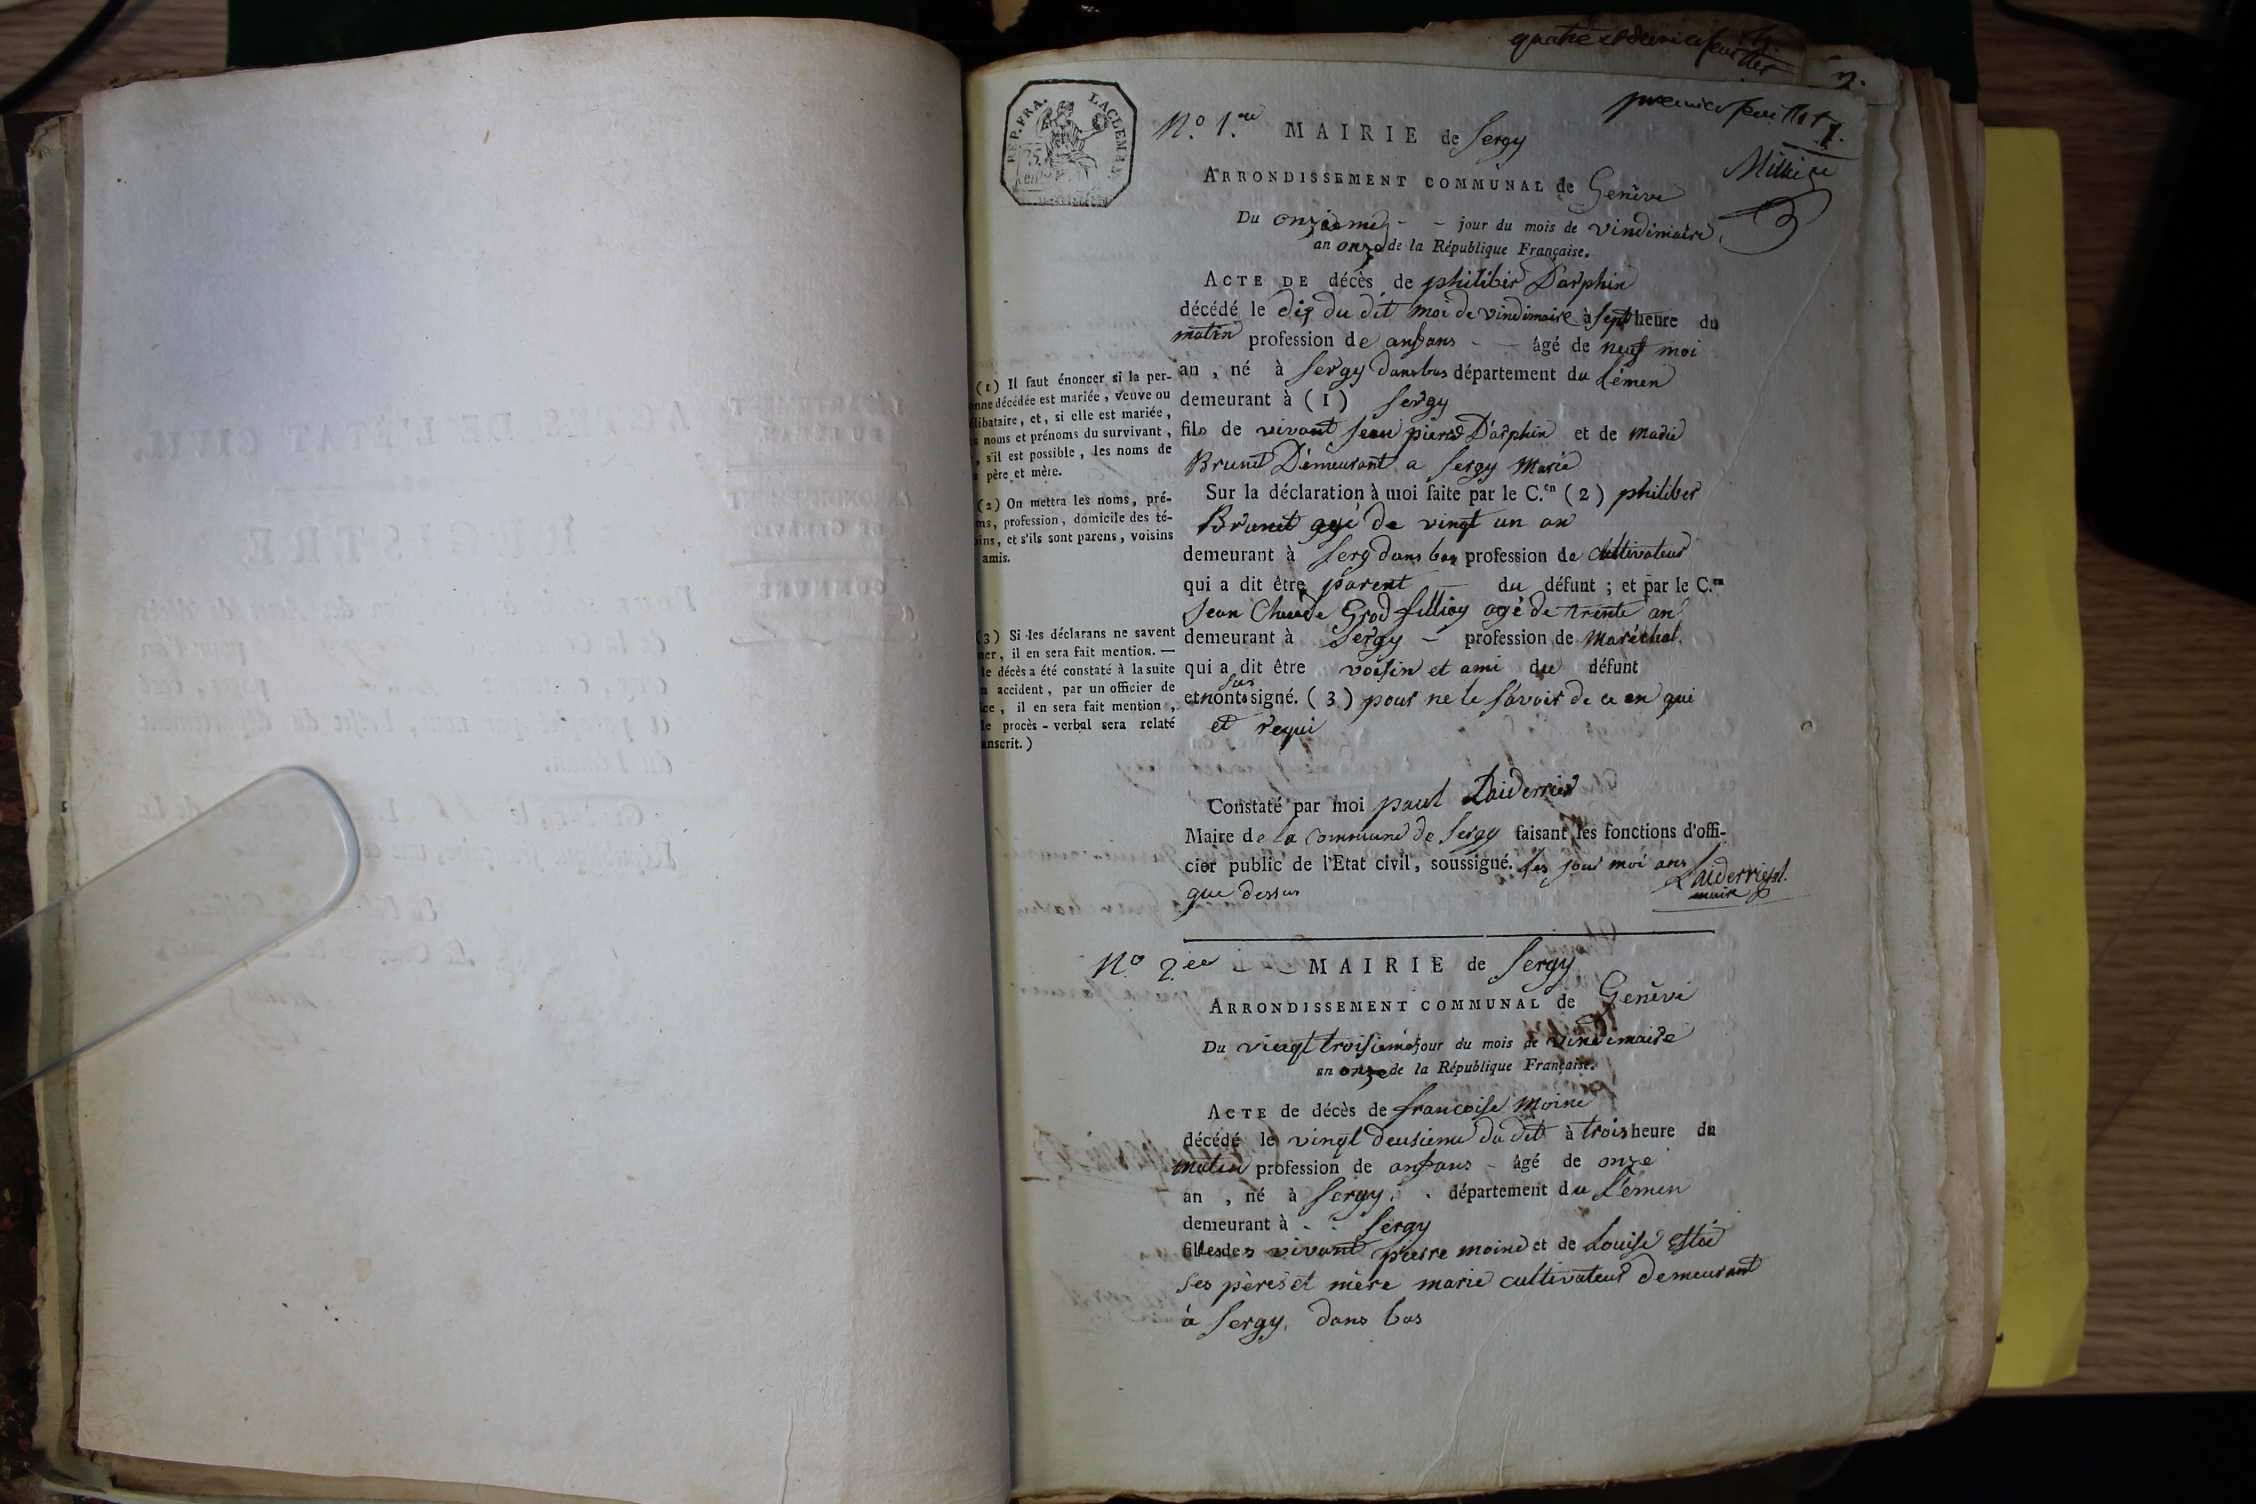 quatre et
2.
premier feuillet
1.
RÉP. FRA.
LACLEMAN.
75.
N.o 1.er MAIRIE de Sergy
ARRONDISSEMENT COMMUNAL de Genève
Du onzieme - - jour du mois de vindimaire
an onze de la République Française.
ACTE DE décès de philiber Darphin
décédé le dix du dit moi de vindimaire à sept heure du
matin profession de anfans - - âgé de neuf moi
an , né à Sergy dans bas département du Lémen
demeurant à (1) Sergy
fils de vivant Jean pierre Darphin et de marie
Brunet Demeurant a Sergy Marié
Sur la déclaration à moi faite par le C.en (2) philiber
Brunet agé de vingt un an
demeurant à Serg dans bas profession de Cultivateur
qui a dit être parent du défunt ; et par le C.en
Jean Claude Grod fillioy agé de trente an
demeurant à Sergy - profession de Maréchal
qui a dit être voisin et ami du défunt
sus
et nont signé. (3) pour ne le savoir de ce en qui
et requi
Constaté par moi paul Laiderrier
Maire de la Commune de Sergy faisant les fonctions d'offi-
cier public de l'Etat civil, soussigné. les jour moi ans
que dessus
Laiderrier
maire
(1) Il faut énoncer si la per-
onne décédée est mariée, veuve ou
libataire, et, si elle est mariée,
s noms et prénoms du survivant,
, s'il est possible, les noms de
père et mère.
(2) On mettra les noms, pré-
ms, profession, domicile des té-
oins, et s'ils sont parens, voisins
amis.
(3) Si les déclarans ne savent
ner, il en sera fait mention. —
le décès a été constaté à la suite
n accident, par un officier de
ice, il en sera fait mention,
le procès-verbal sera relaté
anscrit.)
N.o 2.ee MAIRIE de Sergy
ARRONDISSEMENT COMMUNAL de Genèvi
Du vingt troisieme jour du mois de vindimaire
an onze de la République Française.
ACTE de décès de francoise Moine
décédé le vingt deusieme du dit à trois heure du
matin profession de anfans - âgé de onze
an , né à Sergy. . département du Lémen
demeurant à . . Sergy
filles des vivant pierre moine et de Louise
Ses pères et mère marie cultivateur demeurant
à Sergy. dans bas